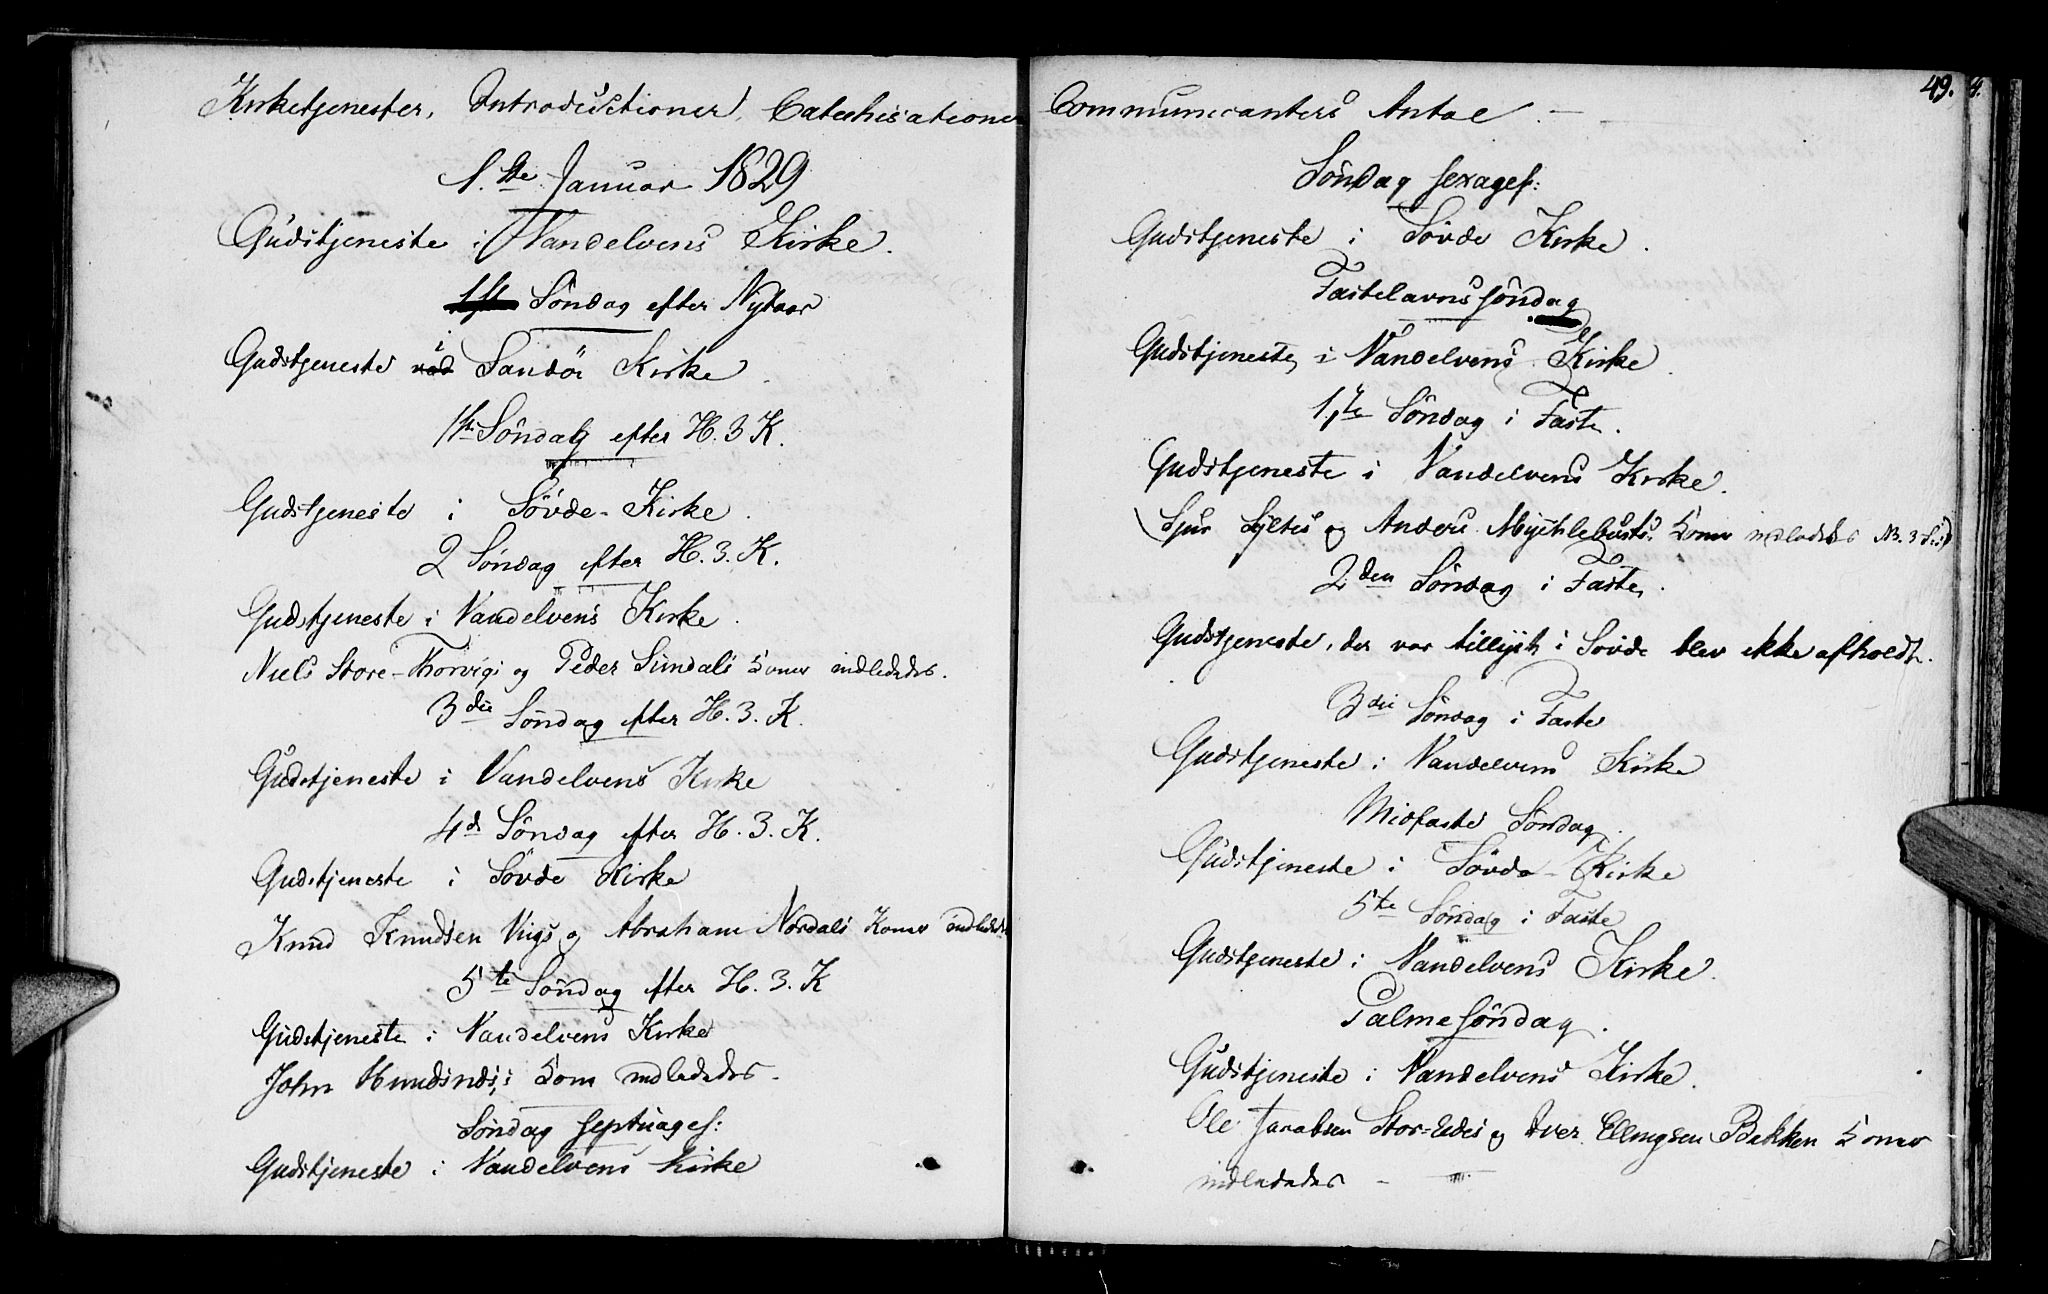 Kirketjenester, Introductioner, Catechisationer
1.ste Januar 1829
Gudstjeneste i Vandelvens Kirke.
1ste Søndag efter Nytaar
Gudstjeneste ved i Sandö Kirke
1ste Søndag efter H. 3 K.
Gudstjeneste i Sövde-Kirke.
2 Søndag efter H. 3. K.
Gudstjeneste i Vandelvens Kirke.
Niels Store-Thorvigs og Peder Sundals Koner indledede.
3die Søndag efter H. 3. K.
Gudstjeneste i Vandelvens Kirke
4d Søndag efter H. 3. K.
Gudstjeneste i Sövde Kirke
Knud Knudsen Viigs og Abraham Nordals Koner indledede
5te Søndag efter H. 3. K
Gudstjeneste i Vandelvens Kirke
John Kone indledede.
Søndag septuages:
Gudstjeneste i Vandelvens Kirke
49.
Communicanters Antal. —
Søndag sexages:
Gudstjeneste i Sövde Kirke.
Fastelavns søndag
Gudstjeneste i Vandelvens Kirke.
1ste Søndag i Faste.
Gudstjeneste i Vandelvens Kirke.
Sjur Syltes og Anders Mychlebusts Koner indledede
2den Søndag i Faste.
Gudstjeneste, der var tillyst i Sövde blev ikke afholdt.
3die Søndag i Faste
Gudstjeneste i Vandelvens Kirke
Midfaste Søndag.
Gudstjeneste i Sövde-Kirke
5te Søndag i Faste
Gudstjeneste i Vandelvens Kirke.
Palmesøndag.
Gudstjeneste i Vandelvens Kirke.
Ole Jacobsen og Iver Ellingsen Bakken Koner
indledede -